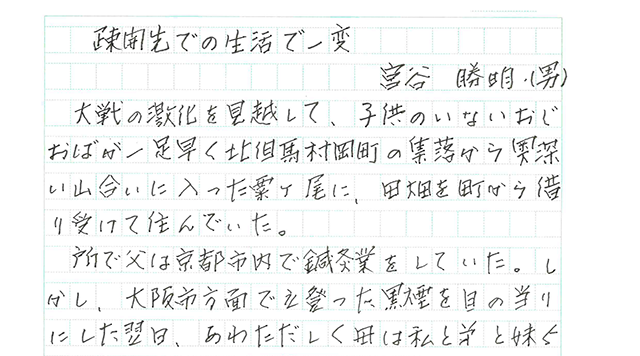 疎開先での生活で一変
宮谷 勝明・(男)
大戦の激化を見越して、子供のいないおじ
おばが一足早く北但馬村岡町の集落から奥深
い山合いに入った粟ヶ尾に、田畑を町から借
り受けて住んでいた。
所で父は京都市内で鍼灸業をしていた。し
かし、大阪市方面で立登った黒煙を目の当り
にした翌日、あわただしく母は私と弟と妹を